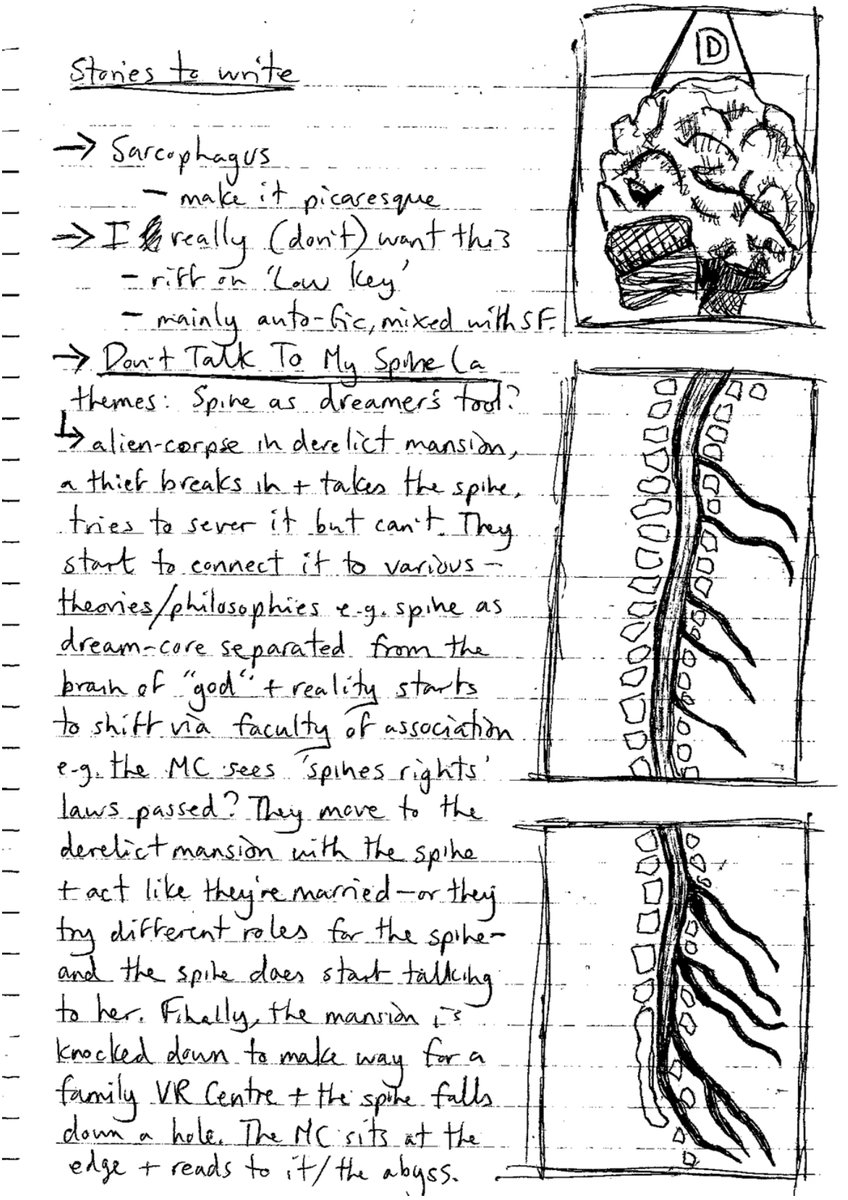 Stories to write
→ Sarcophagus
– make it picaresque
→ I really (don't) want this
– riff on 'Low Key'
– mainly auto-fic, mixed with SF.
→ Don't Talk To My Spine (a
themes: Spine as dreamer's tool?
↳ alien-corpse in derelict mansion,
a thief breaks in + takes the spine,
tries to sever it but can't. They
start to connect it to various –
theories/philosophies e.g. spine as
dream-core separated from the
brain of "god" + reality starts
to shift via faculty of association
e.g. the MC sees 'spines rights'
laws passed? They move to the
derelict mansion with the spine
+ act like they're married – or they
try different roles for the spine –
and the spine does start talking
to her. Finally, the mansion is
knocked down to make way for a
family VR Centre + the spine falls
down a hole. The MC sits at the
edge + reads to it/the abyss.
D